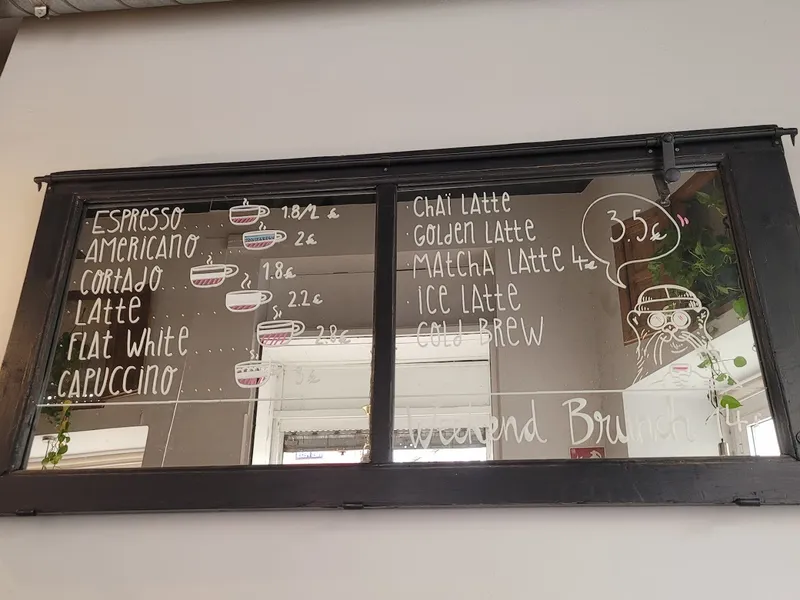 ESPRESSO 1.8/2 €
AMERICANO 2€
CORTADO 1.8€
LATTE 2.2€
FLAT WHITE 2.8€
CAPUCCINO 3€
CHAÏ LATTE
GOLDEN LATTE
MATCHA LATTE 4€
ICE LATTE
COLD BREW
3.5€
Weekend Brunch